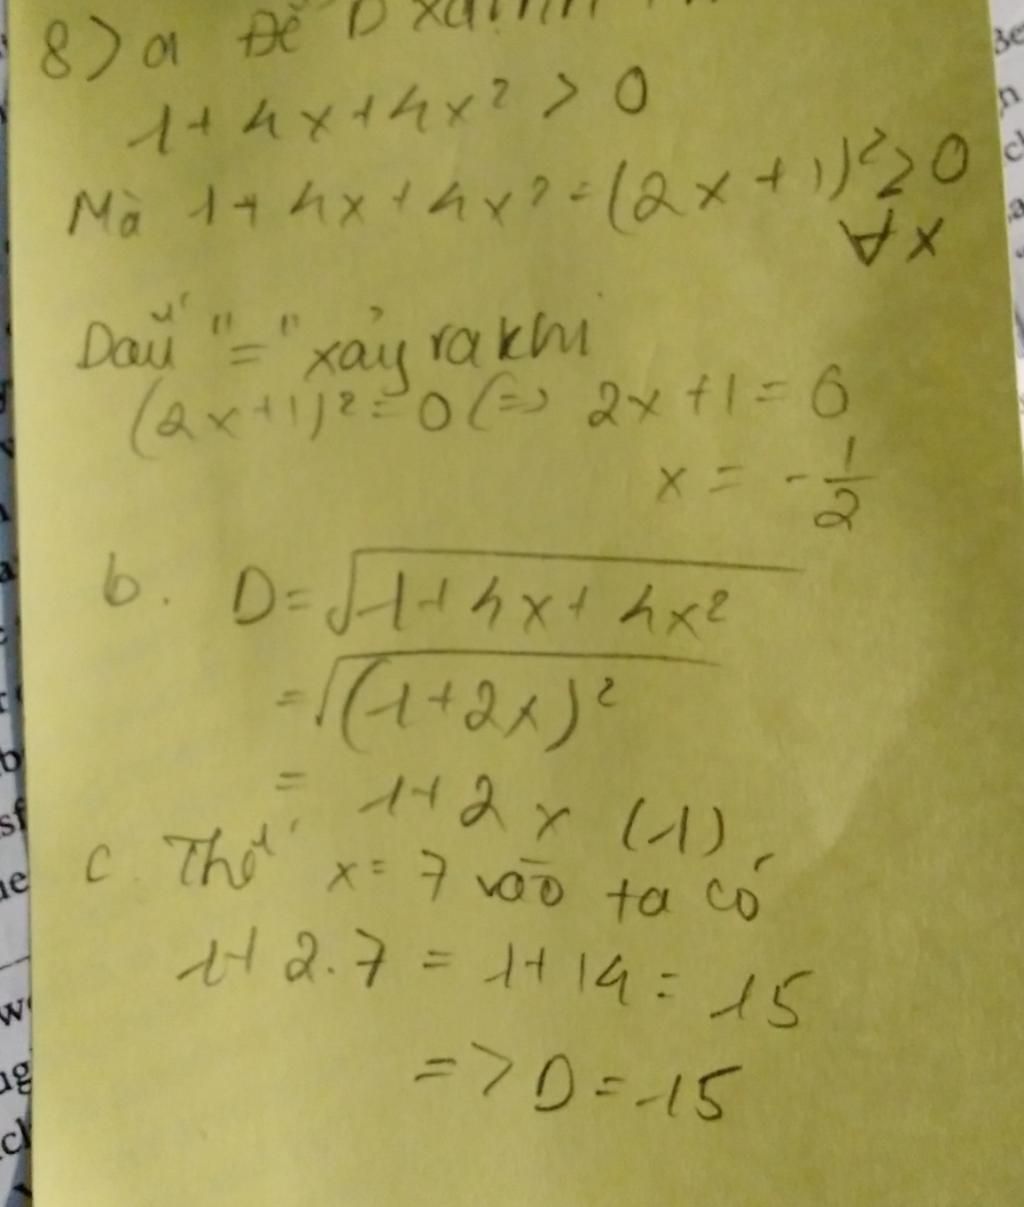 8) a Để D
1 + 4x + 4x² > 0
Mà 1 + 4x + 4x² = (2x + 1)² ≥ 0
∀x
Dấu "=" xảy ra khi
(2x + 1)² = 0 (=> 2x + 1 = 0
x = - 1/2
b. D = √1 + 4x + 4x²
= √(1 + 2x)²
= 1 + 2x (1)
c. Thế x = 7 vào ta có
1 + 2.7 = 1 + 14 = 15
=> D = 15